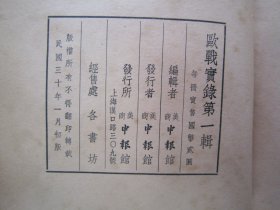 歐戰實錄第一輯
每冊實售國幣貳圓
編輯者 美商 申報館
發行者 美商 申報館
發行所 美商 申報館
上海漢口路三〇九號
經售處 各書坊
版權所有不得翻印轉載
民國三十年一月初版